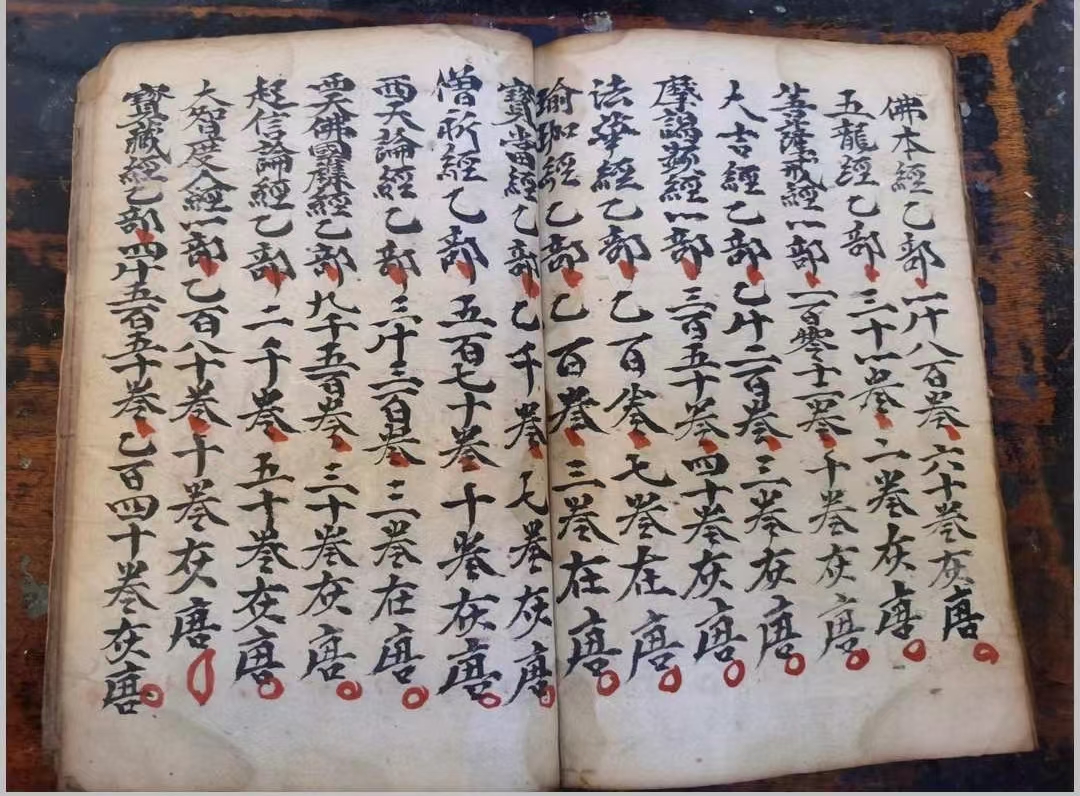 佛本經乙部一千八百卷六十卷在唐
五龍經乙部三十一卷二卷在唐
菩薩戒經一部一百零十一卷千卷在唐
大吉經乙部乙千二百卷三卷在唐
摩謁藏經一部三百五十卷四十卷在唐
法華經乙部乙百卷七卷在唐
瑜珈經乙部乙百卷三卷在唐
寶當經乙部乙千卷七卷在唐
僧祈經乙部五百七十卷十卷在唐
西天論經乙部三千二百卷三卷在唐
西天佛國雜經乙部九千五百卷三十卷在唐
起信論經乙部二千卷五十卷在唐
大智度經一部乙百八十卷十卷在唐
寶藏經乙部四千五百五十卷乙百四十卷在唐